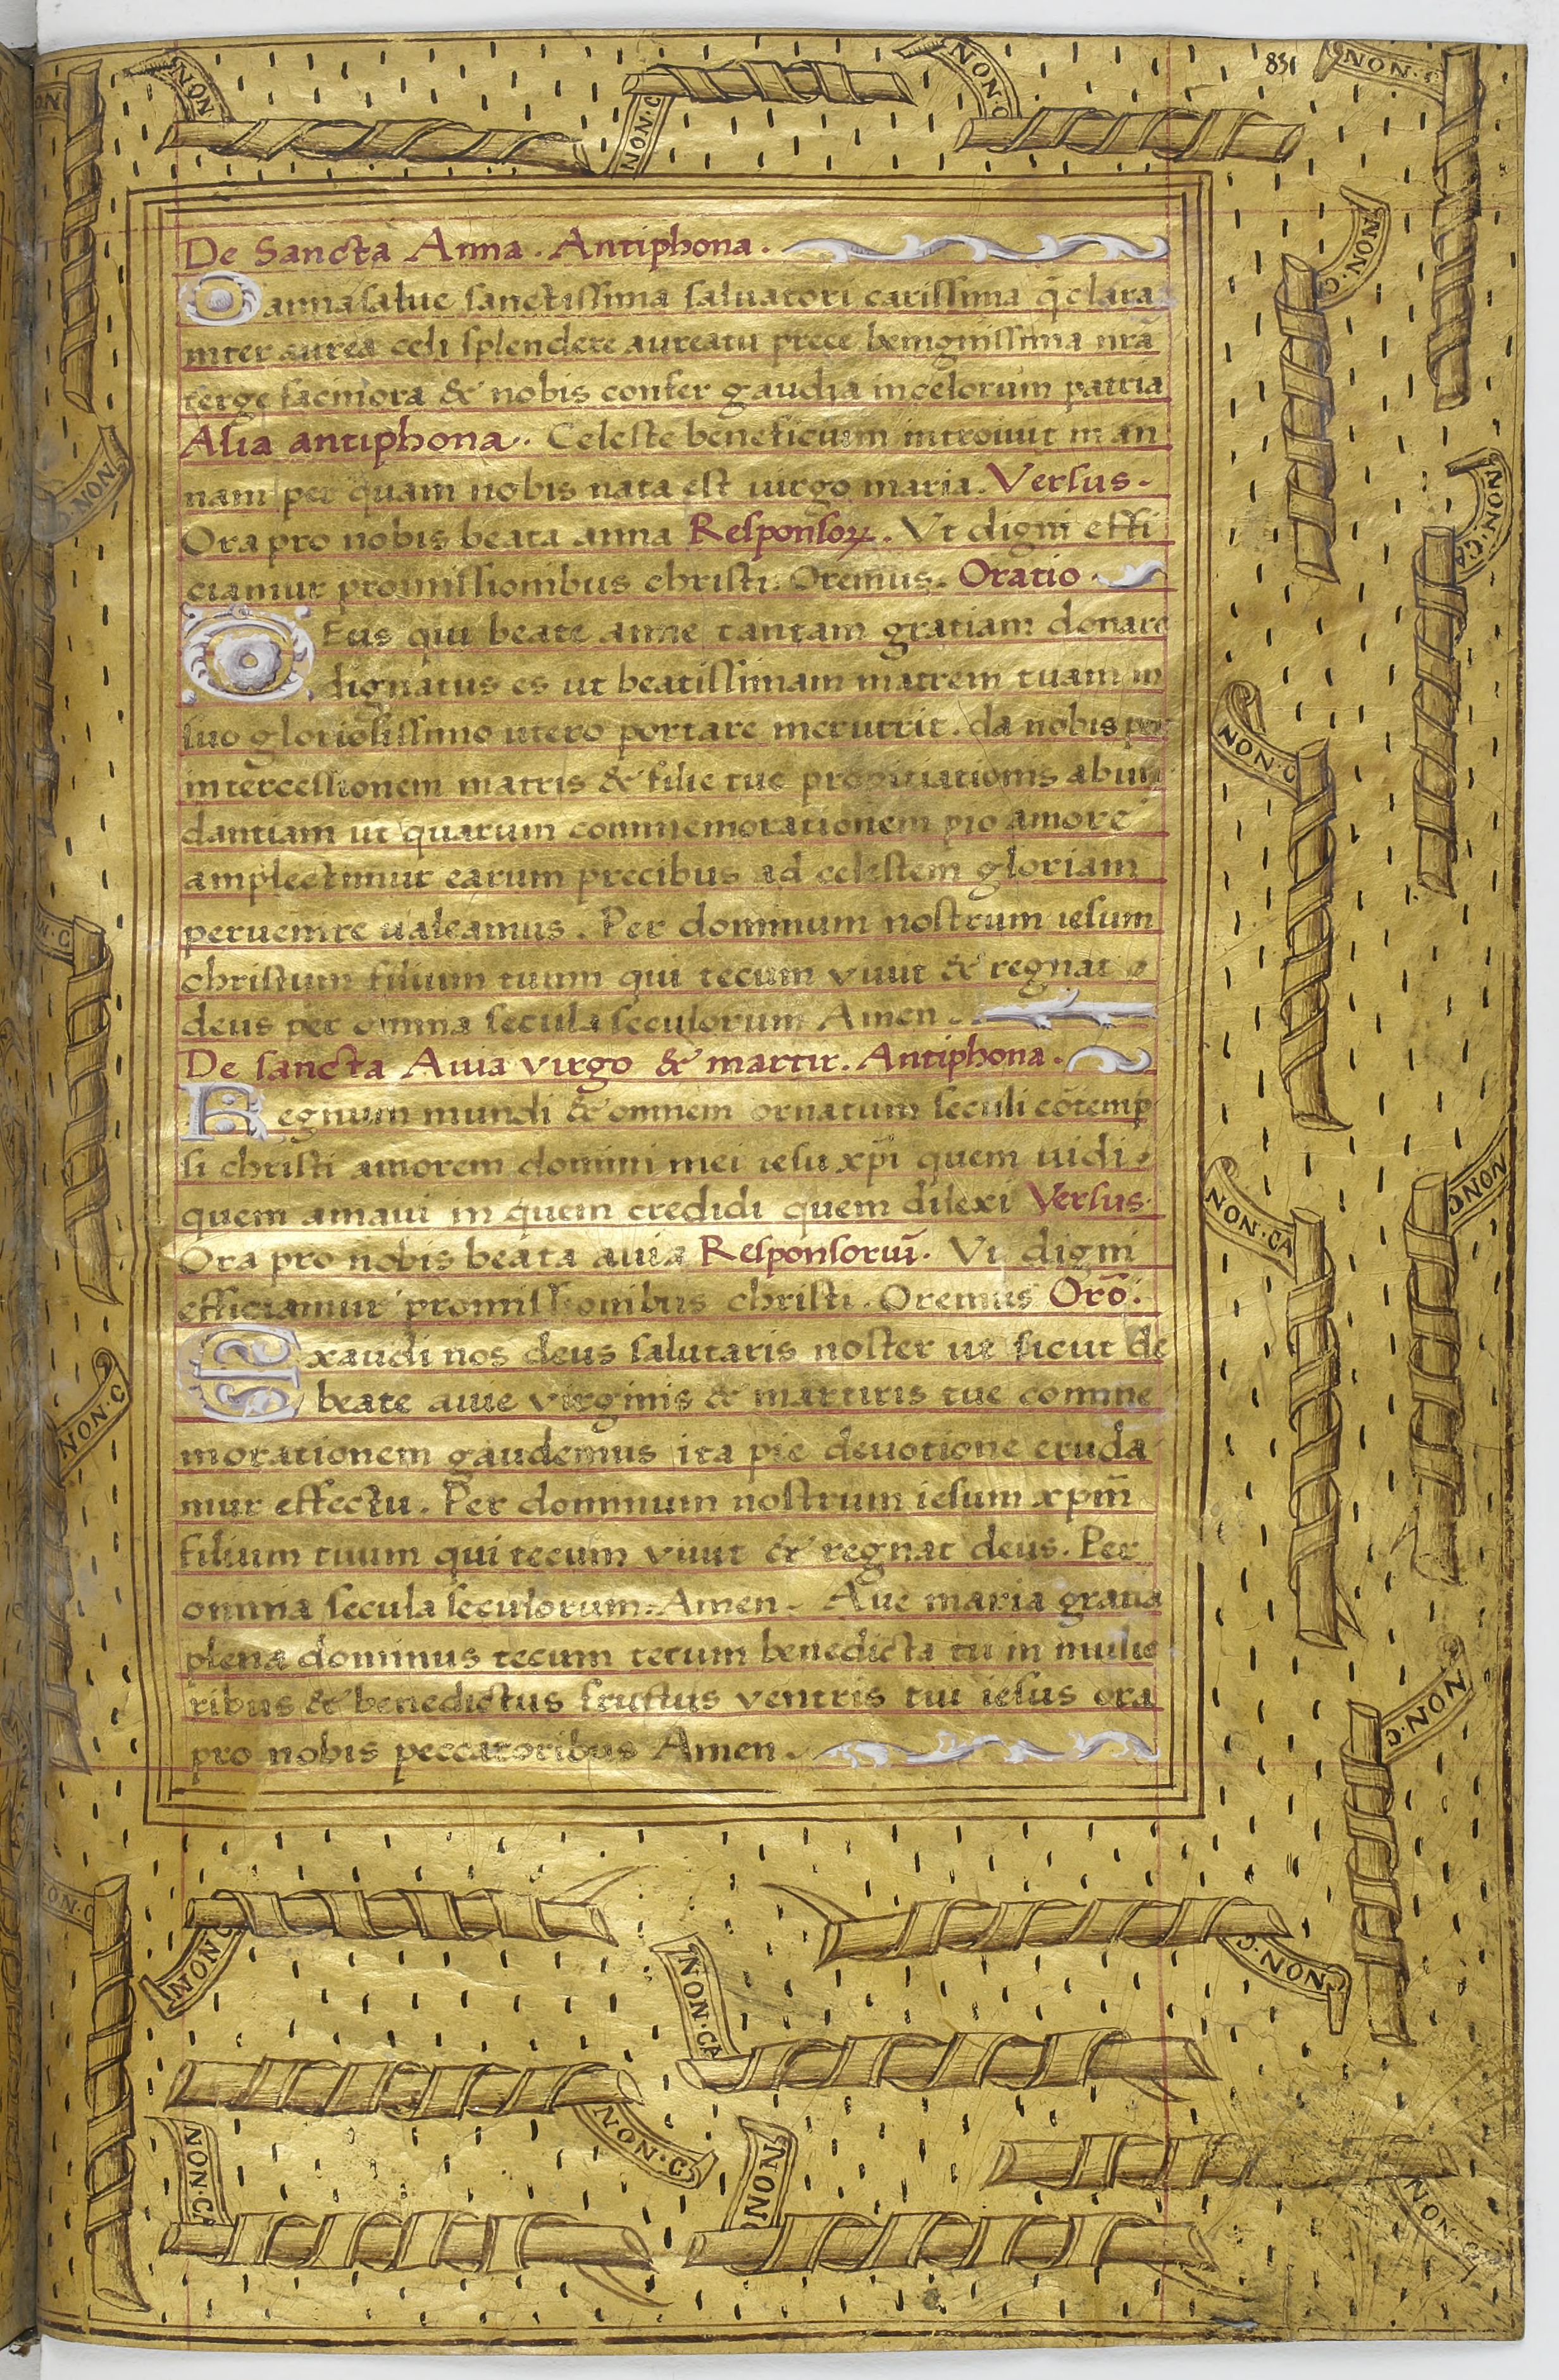 831
NON
NON·C
NON·C
NON·C
De Sancta Anna. Antiphona.
O anna salue sanctissima saluatori carissima q̄ clara
inter aurea celi splendere aureatu prece benignissima nrā
terge facinora & nobis confer gaudia in celorum patria
Alia antiphona. Celeste beneficium introiuit in an
nam per quam nobis nata est uirgo maria. Versus.
Ora pro nobis beata anna Responsoꝝ. Vt digni effi
ciamur promissionibus christi. Oremus. Oratio.
DEus qui beate anne tantam gratiam donare
dignatus es ut beatissimam matrem tuam in
suo gloriosissimo utero portare meruerit. da nobis per
intercessionem matris & filie tue propitiationis abun
dantiam ut quarum commemorationem pio amore
amplectimur earum precibus ad celestem gloriam
peruenire ualeamus. Per dominum nostrum iesum
christum filium tuum qui tecum viuit & regnat
deus per omnia secula seculorum Amen.
De sancta Auia virgo & martir. Antiphona.
Regnum mundi & omnem ornatum seculi cōtemp
si christi amorem domini mei iesu xp̄i quem uidi
quem amaui in quem credidi quem dilexi Versus.
Ora pro nobis beata auia Responsoruī. Vt digni
efficiamur promissionibus christi. Oremus Orō.
Exaudi nos deus salutaris noster ut sicut de
beate auie virginis & martiris tue comme
morationem gaudemus ita pie deuotione eruda
mur effectu. Per dominum nostrum iesum xpm̄
filium tuum qui tecum viuit & regnat deus. Per
omnia secula seculorum. Amen. Aue maria gratia
plena dominus tecum tecum benedicta tu in mulie
ribus & benedictus fructus ventris tui iesus ora
pro nobis peccatoribus Amen.
NON·C
NON·C
NON·C
NON·CA
NON·C
NON·C
NON
NON·C
NON·C
NON·C
NON·CA
NON·C
NON·CA
NON·C
NON
NON·CA